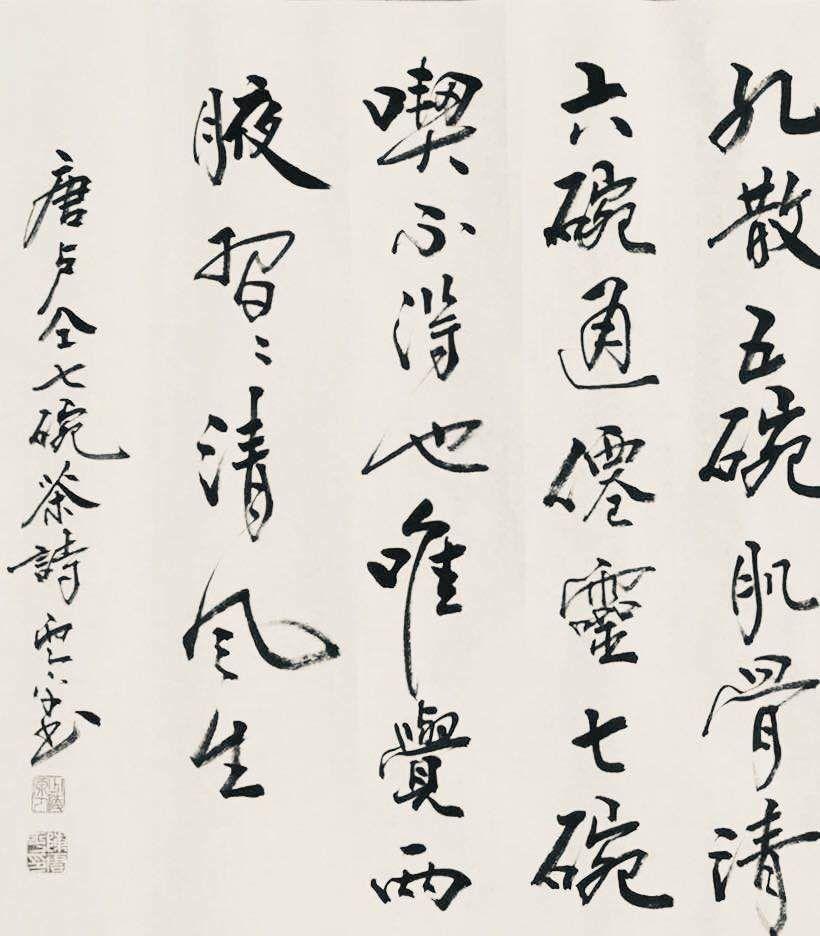 孔散五碗肌骨清
六碗通僊靈七碗
喫不得也唯覺兩
腋習〻清風生
唐卢仝七碗茶詩雲平書